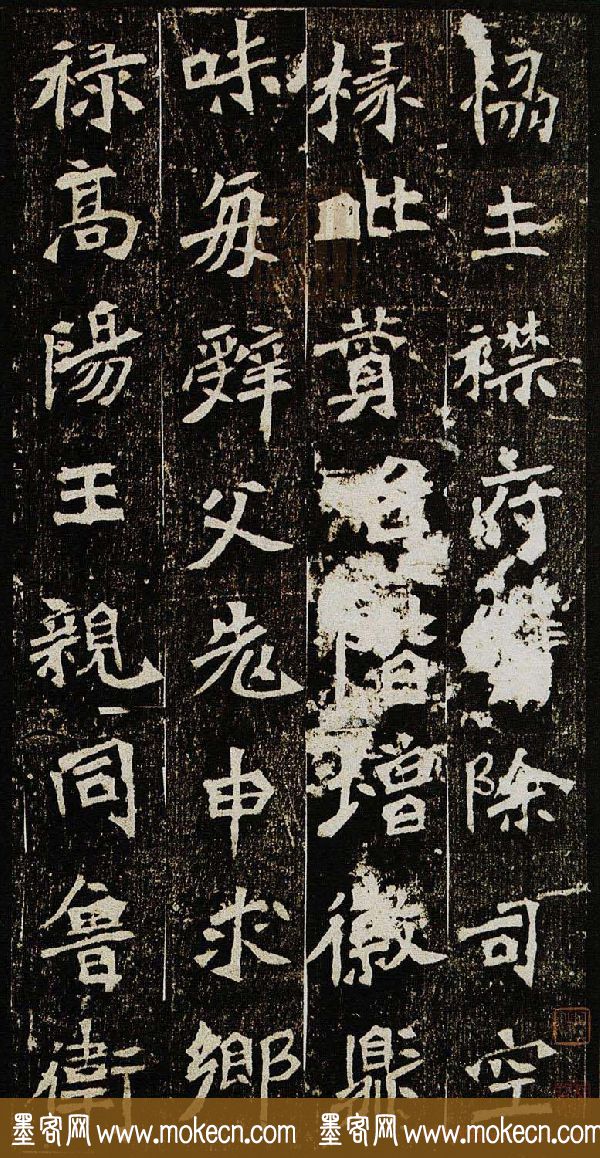 協土襟府解除司空
椽此賁台階增徽鼎
味每辭父先申求鄉
祿高陽王親同魯衛
墨客网 www.mokecn.com 墨客网 www.mokecn.com